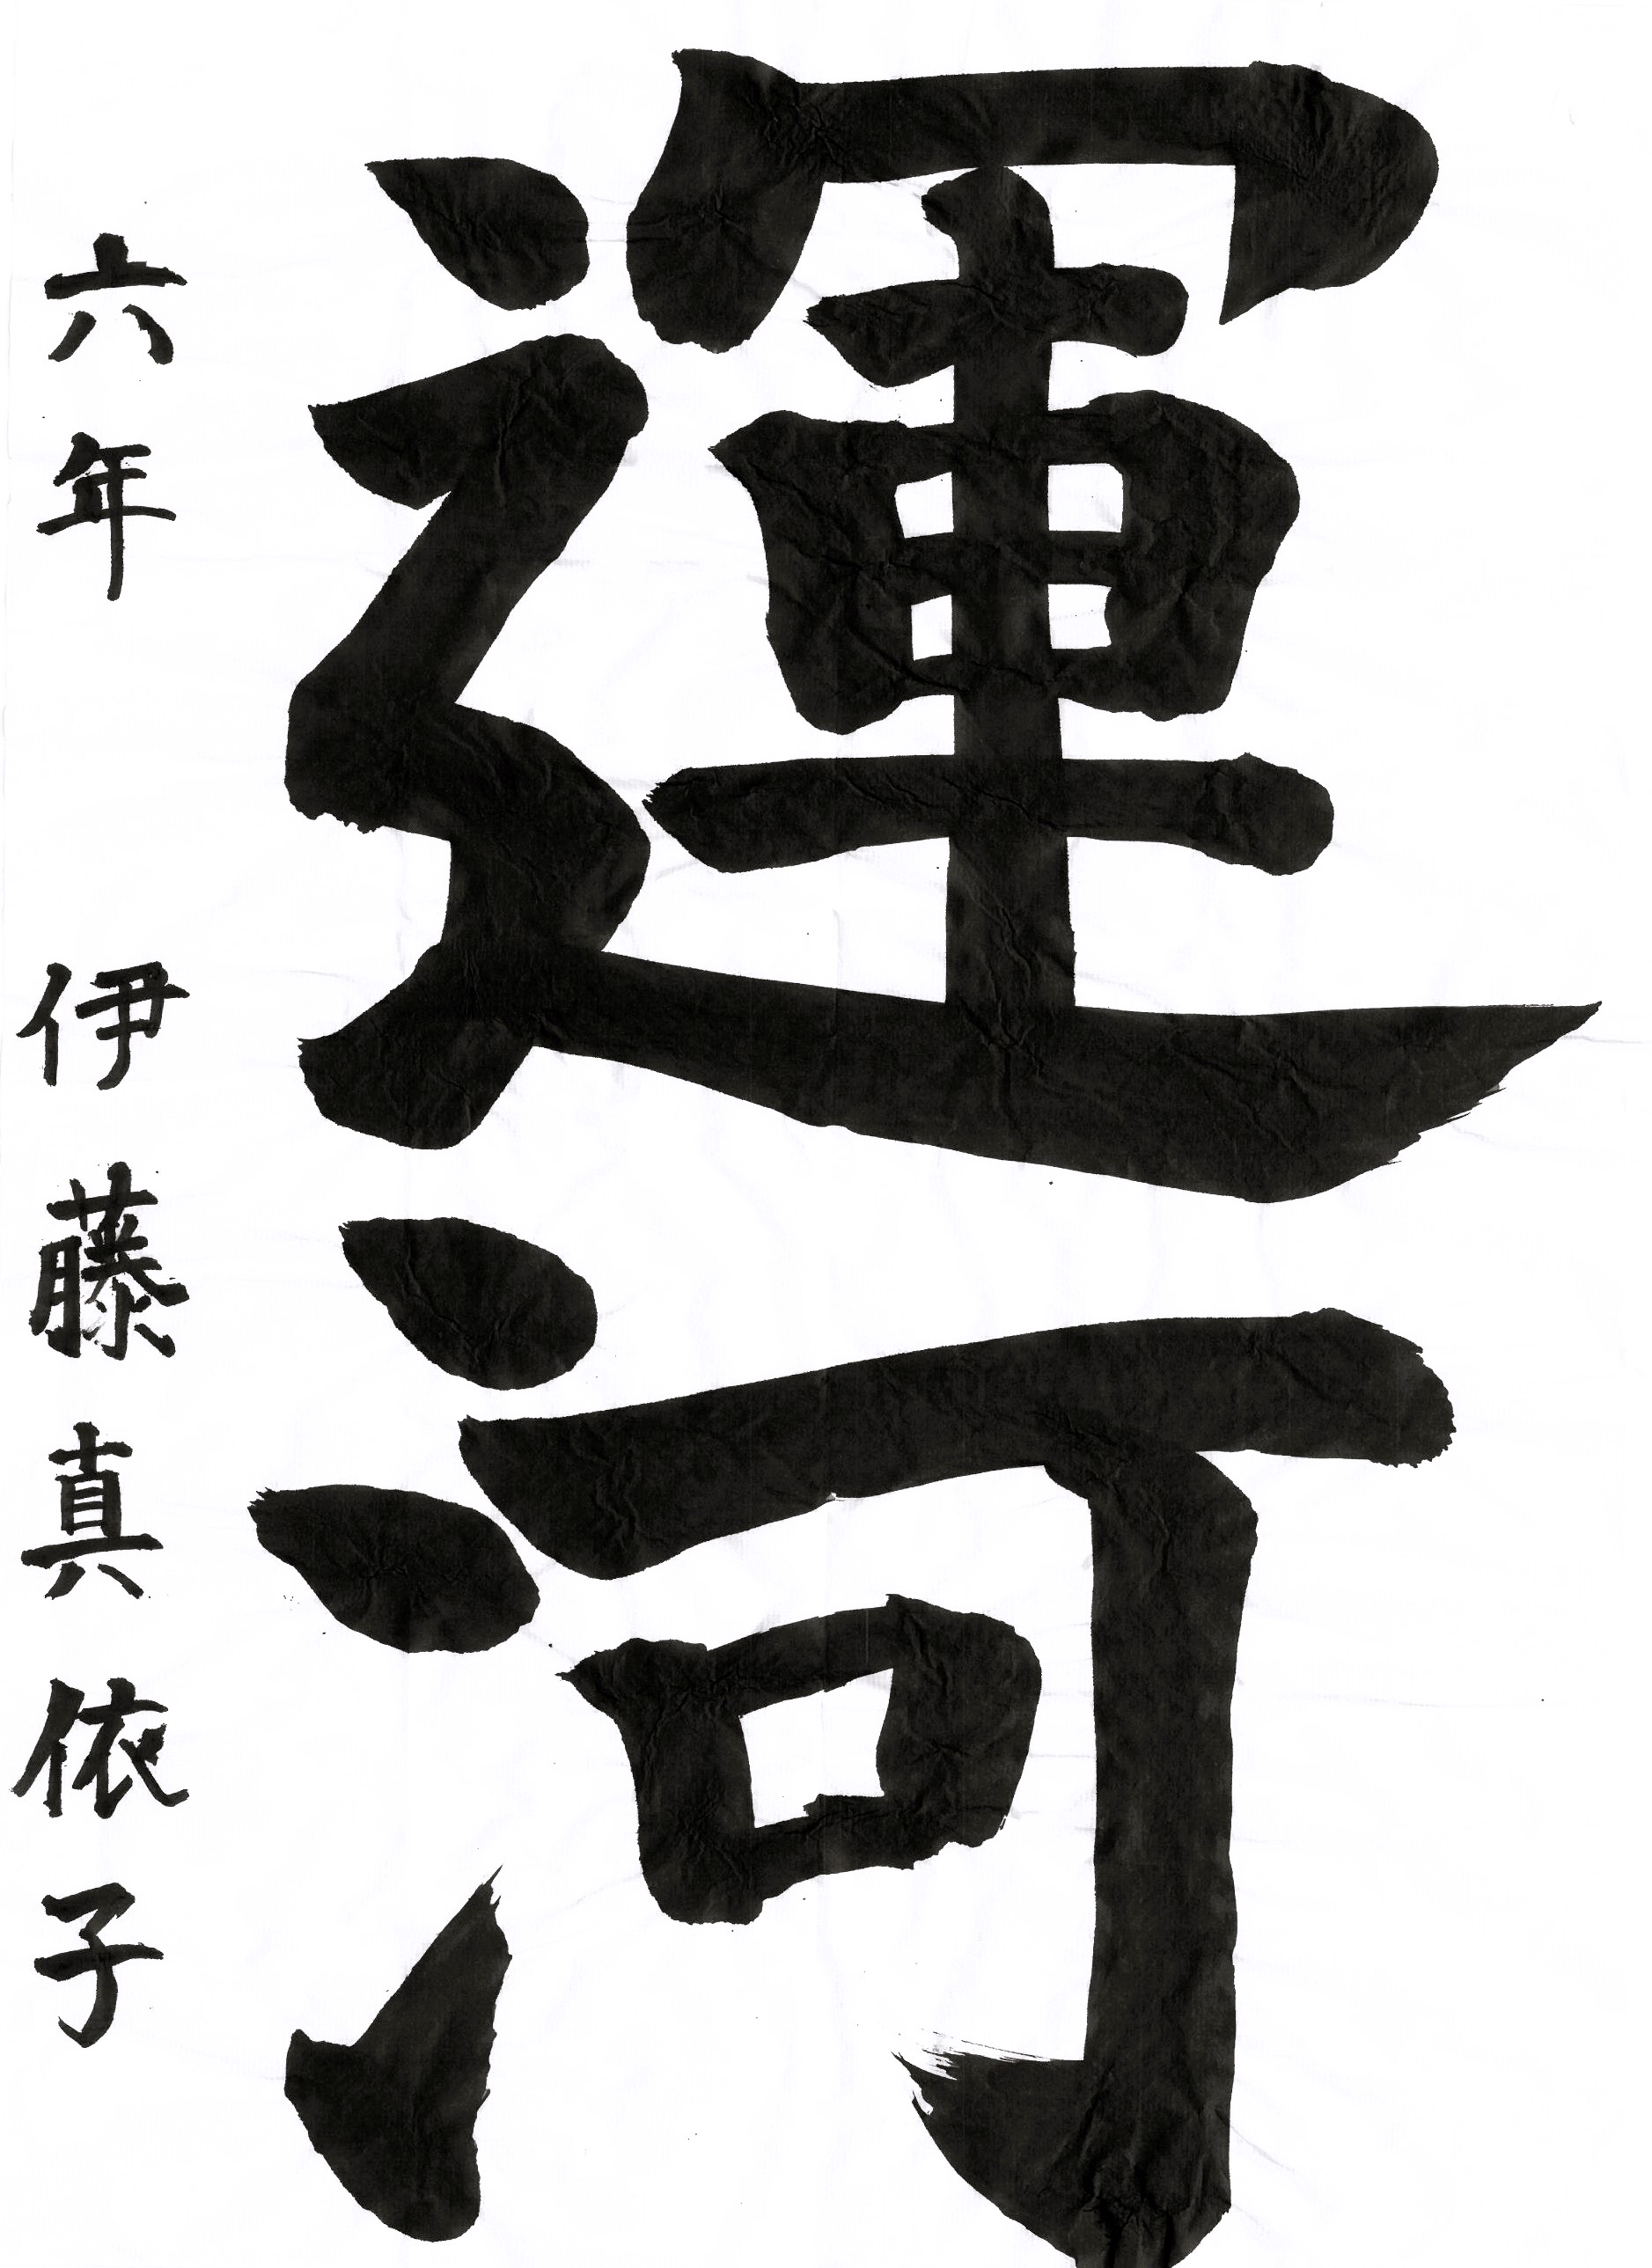 運河
六年 伊藤真依子